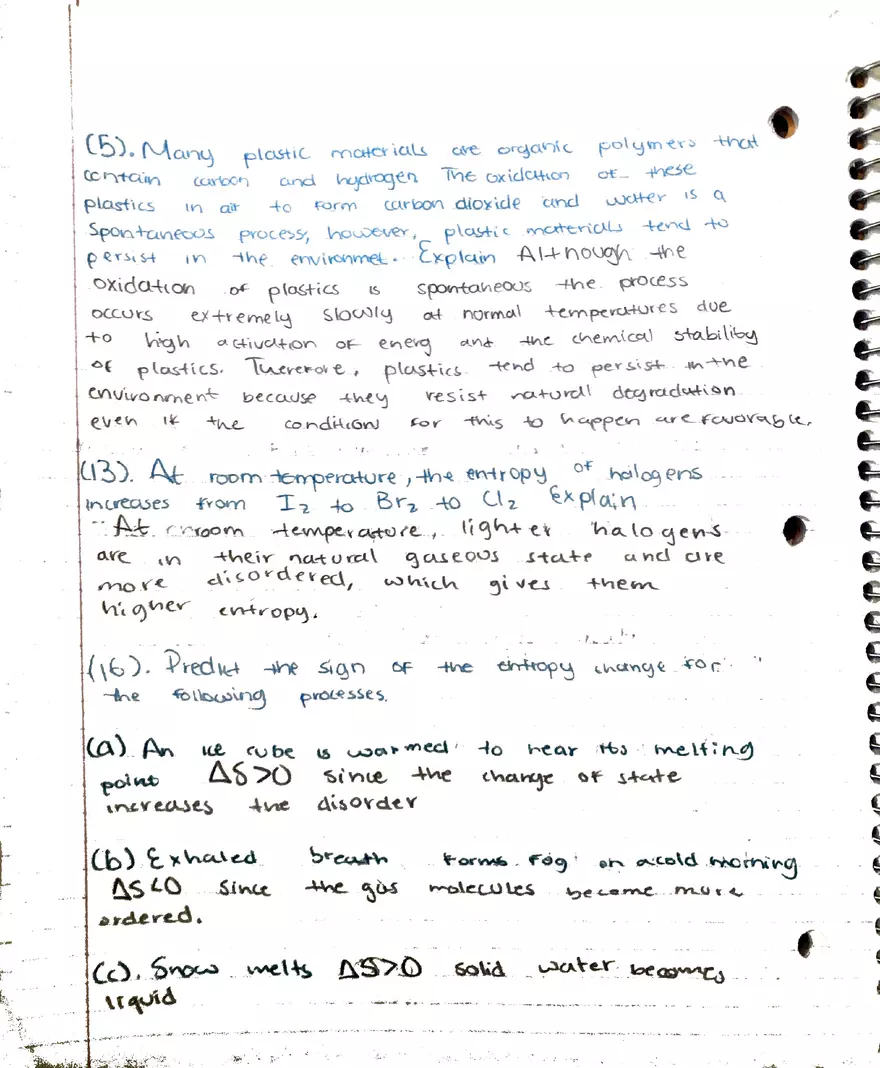 (5). Many plastic materials are organic polymers that
contain carbon and hydrogen The oxidation of these
plastics in air to form carbon dioxide and water is a
Spontaneous process, however, plastic materials tend to
persist in the environmet. Explain Although the
oxidation of plastics is spontaneous the process
occurs extremely slowly at normal temperatures due
to high activation of energ and the chemical stability
of plastics. Therefore, plastics tend to persist in the
environment because they resist natural degradation
even if the condition for this to happen are favorable.
(13). At room temperature, the entropy of halogens
increases from I₂ to Br₂ to Cl₂ Explain
At room temperature, lighter halogens
are in their natural gaseous state and are
more disordered, which gives them
higher entropy.
(16). Predict the sign of the entropy change for
the following processes.
(a) An ice cube is warmed to near its melting
point ΔS>0 since the change of state
increases the disorder
(b) Exhaled breath forms fog on a cold morning
ΔS<0 since the gas molecules become more
ordered.
(c). Snow melts ΔS>0 solid water becomes
liquid